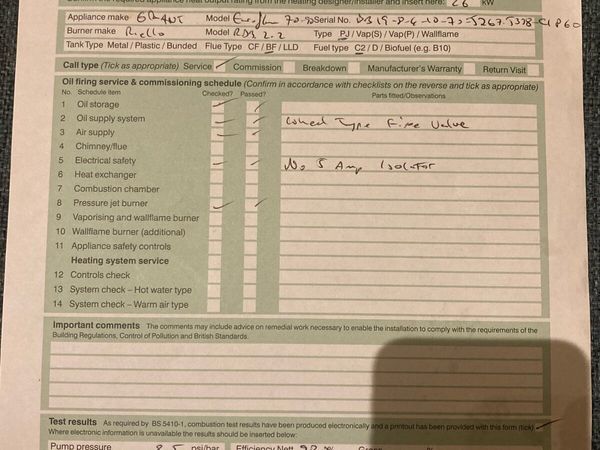 Confirm the required appliance heat output rating from the heating designer/installer and insert here: 26 kW
Appliance make GRANT Model 70-90 Serial No.
Burner make Riello Model RDB 2.2 Type PJ / Vap(S) / Vap(P) / Wallflame
Tank Type Metal / Plastic / Bunded Flue Type CF / BF / LLD Fuel type C2 / D / Biofuel (e.g. B10)
Call type (Tick as appropriate) Service ✓ Commission Breakdown Manufacturer's Warranty Return Visit
Oil firing service & commissioning schedule (Confirm in accordance with checklists on the reverse and tick as appropriate)
No. Schedule item Checked? Passed? Parts fitted/Observations
1 Oil storage ✓ ✓
2 Oil supply system ✓ ✓ Type Fire Valve
3 Air supply ✓ ✓
4 Chimney/flue
5 Electrical safety ✓ ✓ No 5 Amp Isolator
6 Heat exchanger
7 Combustion chamber
8 Pressure jet burner ✓ ✓
9 Vaporising and wallflame burner
10 Wallflame burner (additional)
11 Appliance safety controls
Heating system service
12 Controls check
13 System check – Hot water type
14 System check – Warm air type
Important comments The comments may include advice on remedial work necessary to enable the installation to comply with the requirements of the
Building Regulations, Control of Pollution and British Standards.
Test results As required by BS 5410-1, combustion test results have been produced electronically and a printout has been provided with this form (tick) ✓
Where electronic information is unavailable the results should be inserted below:
Pump pressure psi/bar Efficiency Nett % Gross %